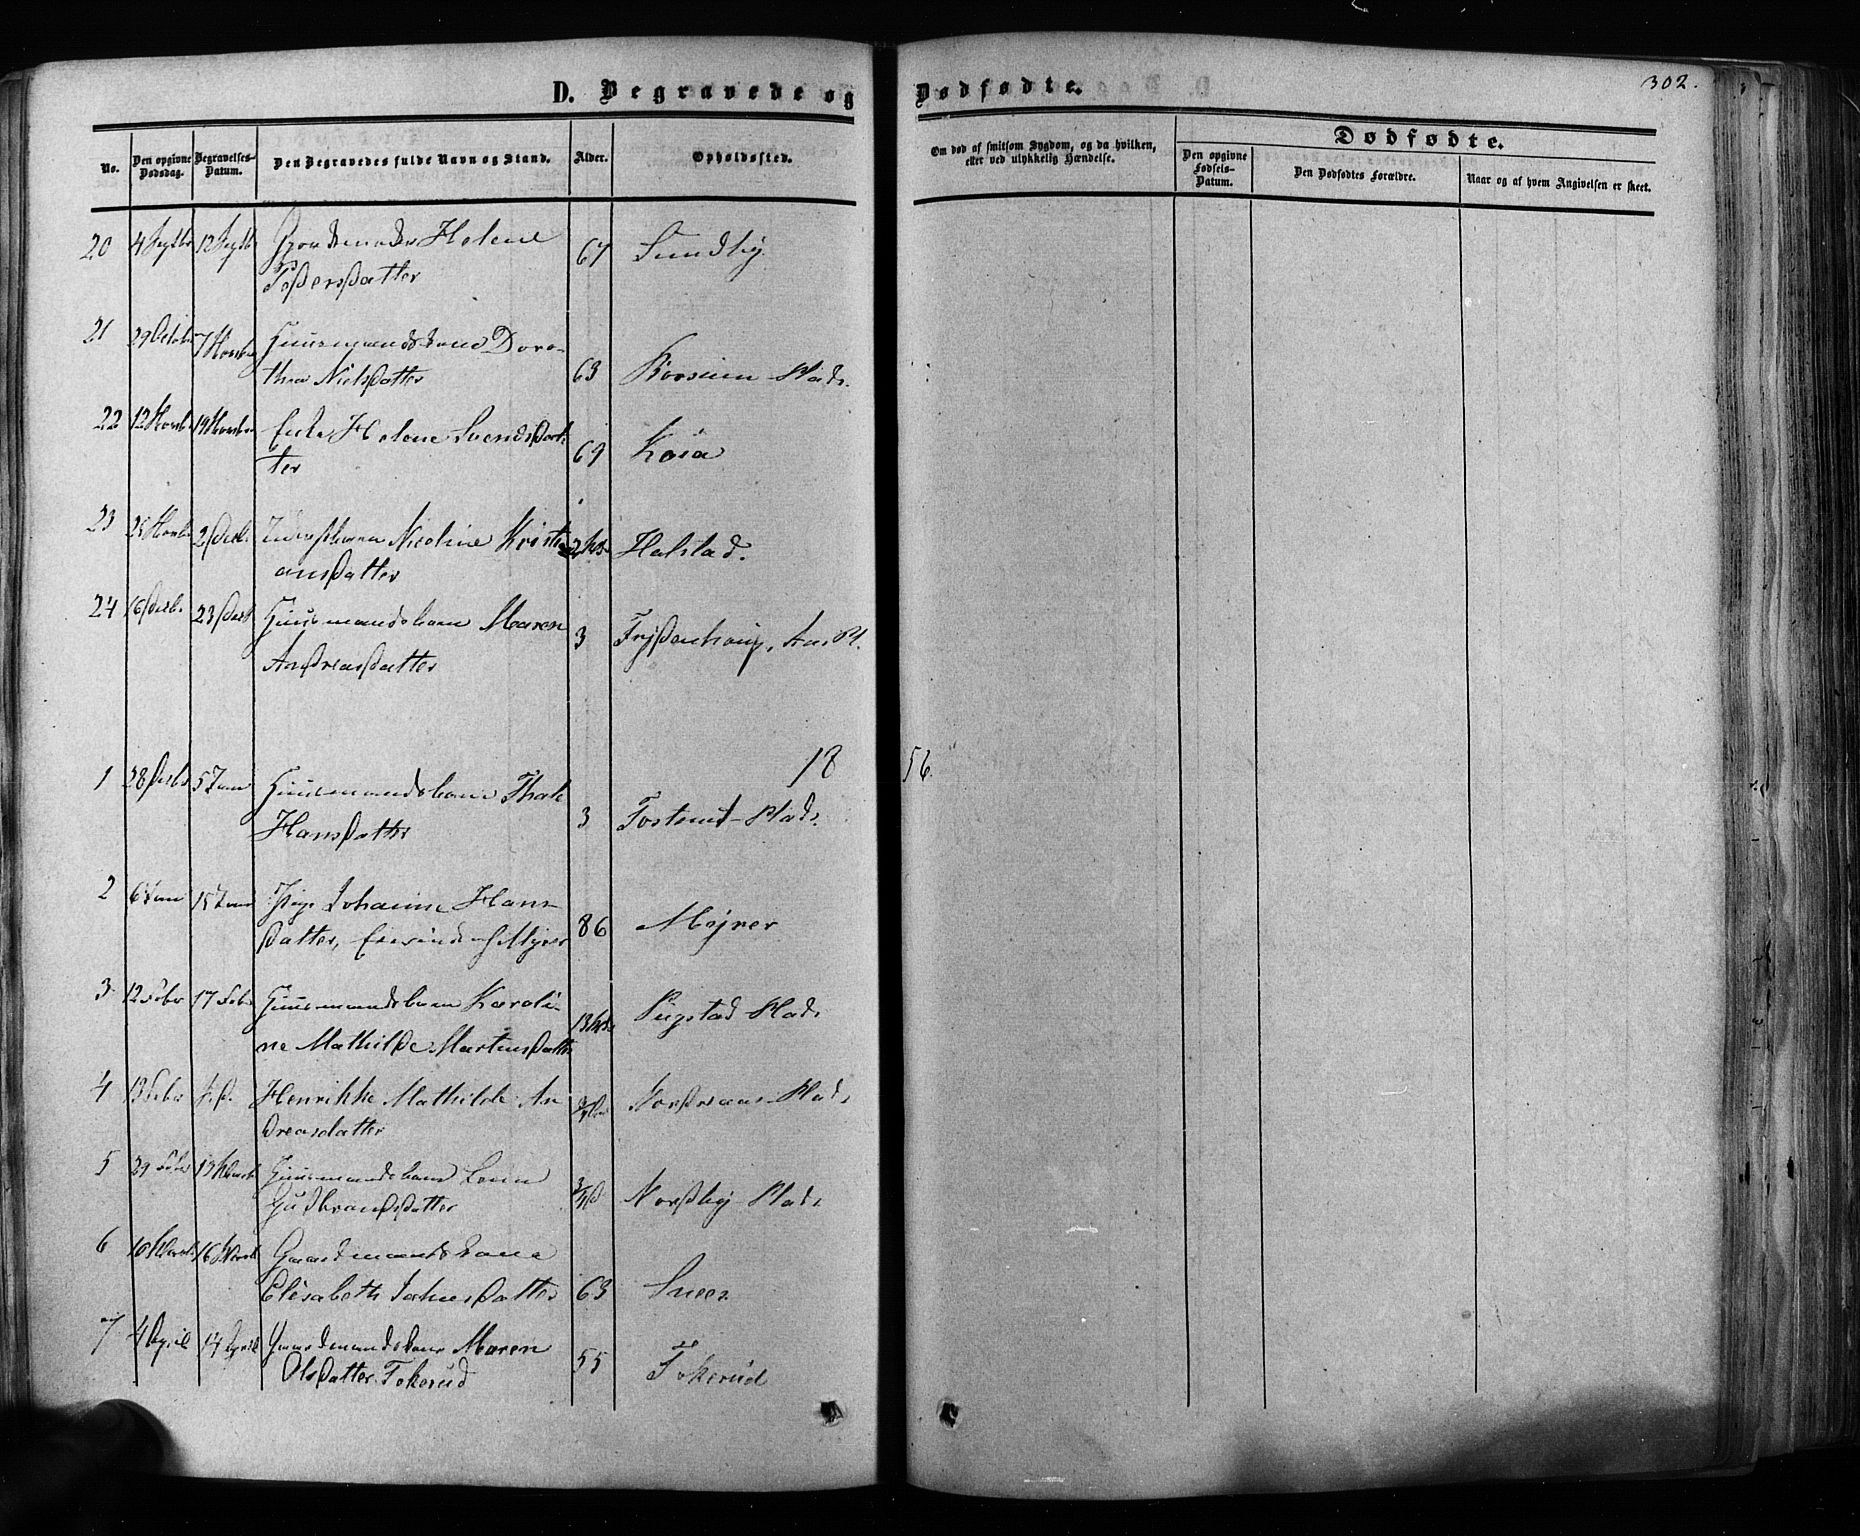 D. Begravede og Dødfødte.
302.
No.
Den opgivne Dødsdag.
Begravelses-Datum.
Den Begravedes fulde Navn og Stand.
Alder.
Opholdssted.
Om død af smitsom Sygdom, og da hvilken,
eller ved ulykkelig Hændelse.
Dødfødte.
Den opgivne Fødsels-Datum.
Den Dødfødtes Forældre.
Naar og af hvem Angivelsen er skeet.
20 4 Septbr 12 Septb Helene
Pedersdatter 67 Sundby
21 29 Octobr 7 Novbr Huusmandskone Doro-
thea Nielsdatter 63 Plads.
22 12 Novbr 19 Novbr Enke Helene Svendsdat-
ter 69 Kosa
23 25 Novbr 2 Decbr Nicoline Kristi-
ansdatter Halstad.
24 16 Decbr 23 Decbr Huusmandsbarn Maren
Andreasdatter 3
18 56.
1 28 Decbr 5 Jan Huusmandsbarn
Hansdatter 3 Plads.
2 6 Jan 15 Jan Johanne Hans-
datter, Myrer 86 Myrer
3 12 Febr 17 Febr Huusmandsbarn Karoli-
ne Mathilde Martinsdatter Plads
4 13 Febr Henrikke Mathilde An-
dreasdatter Plads
5 29 Febr 13 Marts Huusmandsbarn
Gudbrandsdatter Nordby Plads
6 10 Marts 16 Marts Gaardmandskone
Elisabeth Johnsdatter 63
7 4 April 14 April Gaardmandskone Maren
Olsdatter Fokerud 55 Fokerud